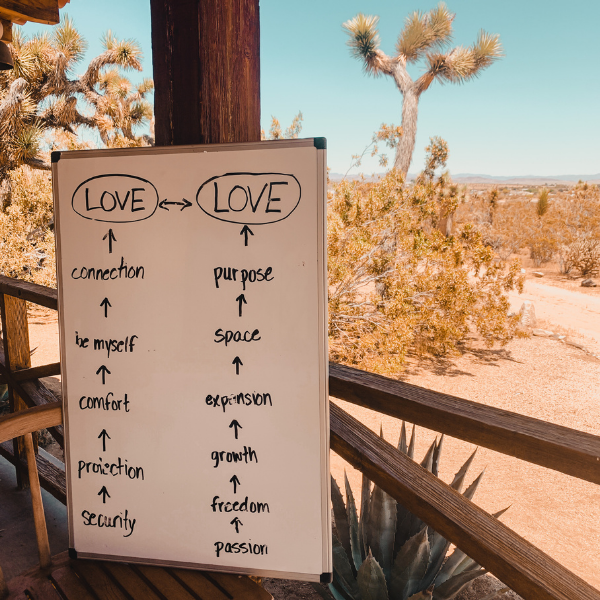 LOVE ↔ LOVE
↑ ↑
connection purpose
↑ ↑
be myself space
↑ ↑
comfort expansion
↑ ↑
protection growth
↑ ↑
security freedom
↑
passion